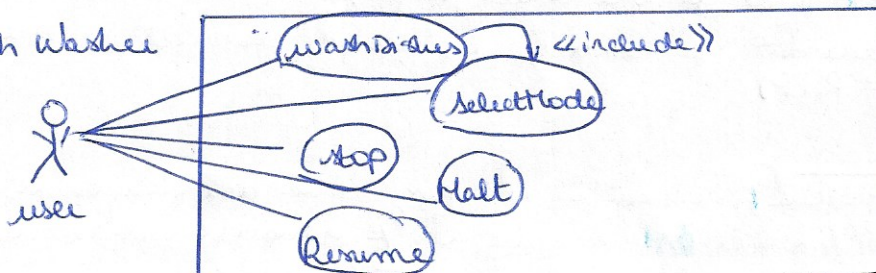 h Washer
WashDishes <<include>>
SelectMode
stop
Halt
user
Resume